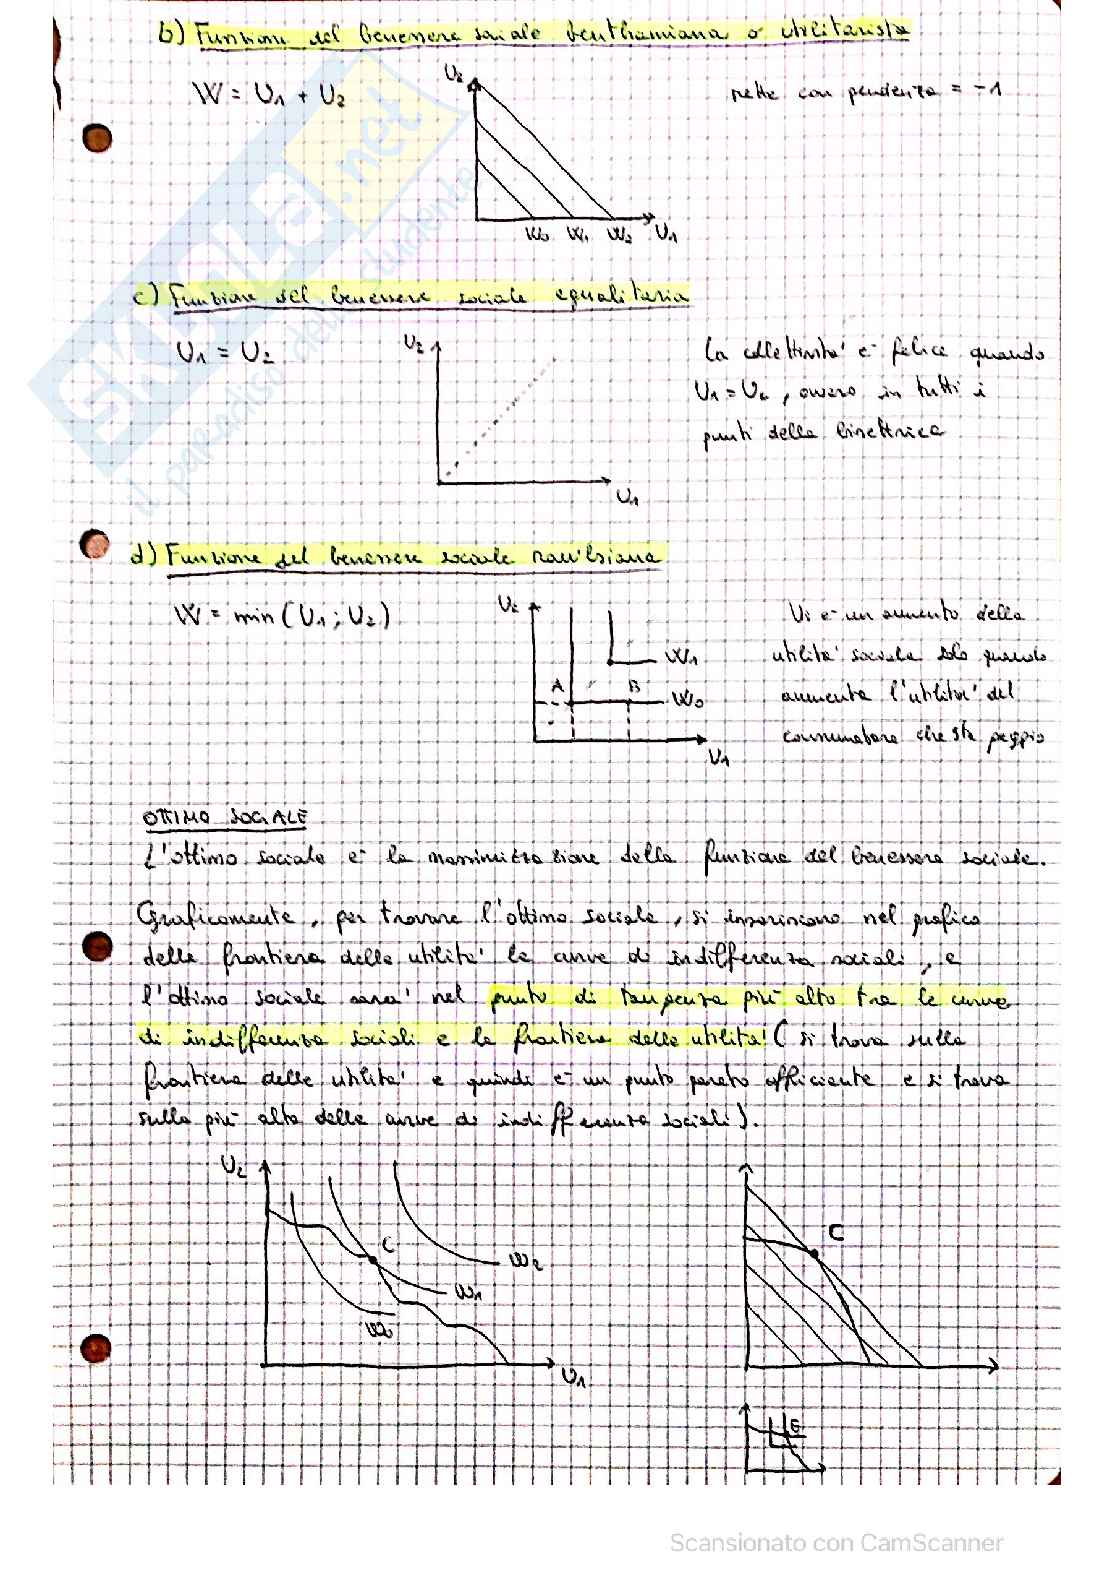 b) Funzione del benessere sociale benthamiana o utilitarista
W = U1 + U2
U2
rette con pendenza = -1
W0 W1 W2 U1
c) Funzione del benessere sociale egualitaria
U1 = U2
U2
U1
La collettività è felice quando
U1 = U2, ovvero in tutti i
punti della bisettrice
d) Funzione del benessere sociale rawlsiana
W = min (U1 ; U2)
U2
A B
W1
W0
U1
Vi è un aumento della
utilità sociale solo quando
aumenta l'utilità del
consumatore che sta peggio
OTTIMO SOCIALE
L'ottimo sociale è la massimizzazione della funzione del benessere sociale.
Graficamente, per trovare l'ottimo sociale, si inseriscono nel grafico
della frontiera delle utilità le curve di indifferenza sociali, e
l'ottimo sociale sarà nel punto di tangenza più alto tra le curve
di indifferenza sociali e la frontiera delle utilità (si trova sulla
frontiera delle utilità e quindi è un punto pareto efficiente e si trova
sulla più alta delle curve di indifferenza sociali).
U2
C
W2
W1
W0
U1
C
E
SKUOLA.net
il paradiso dello studente
Scansionato con CamScanner